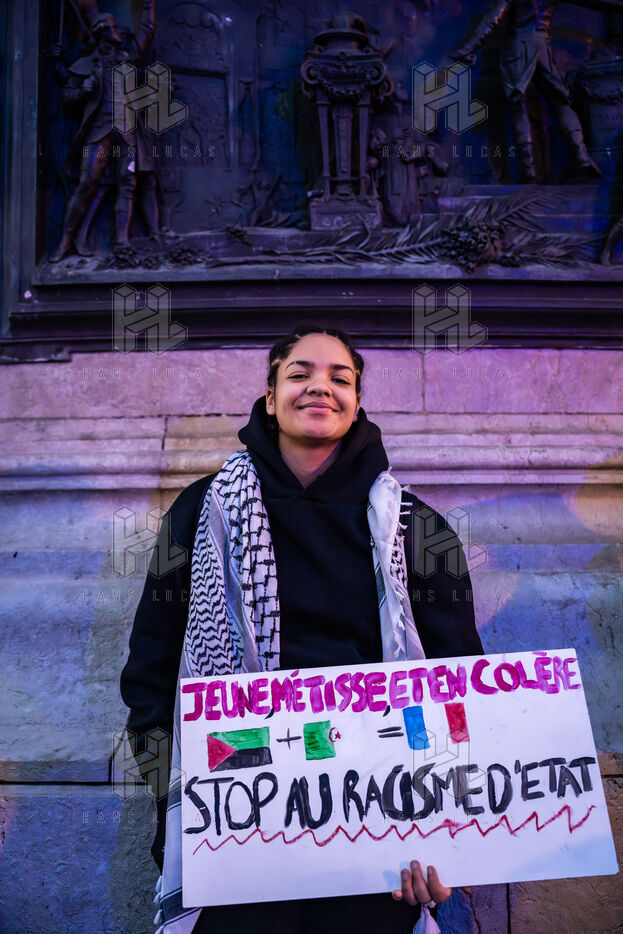 HANS LUCAS HANS LUCAS
HANS LUCAS HANS LUCAS
JEUNE, MÉTISSE, ET EN COLÈRE
+ =
STOP AU RACISME D'ETAT
HANS LUCAS HANS LUCAS